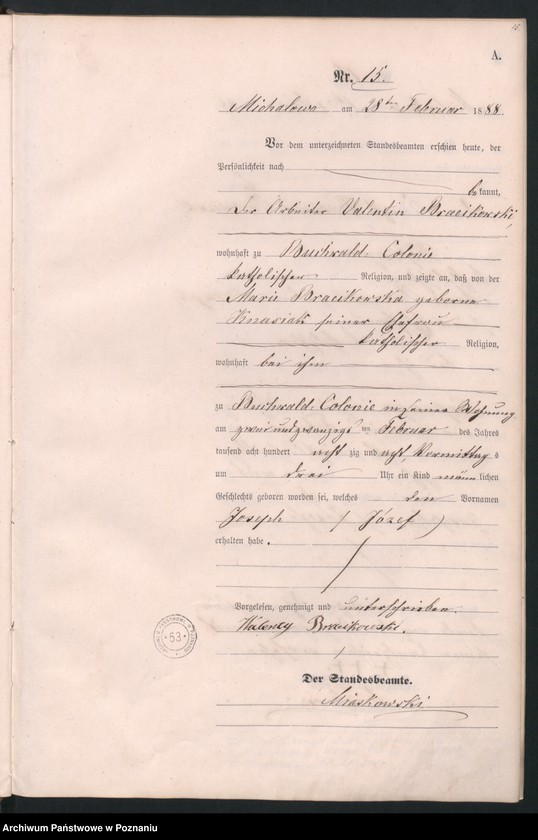 A.
Nr. 15.
Michalowo am 28ten Februar 1888.
Vor dem unterzeichneten Standesbeamten erschien heute, der
Persönlichkeit nach
bekannt,
der Arbeiter Valentin Bracikowski,
wohnhaft zu Buchwald. Colonie
katholischer Religion, und zeigte an, daß von der
Marie Bracikowska geborne
Knasiak seiner Ehefrau
katholischer Religion,
wohnhaft bei ihm
zu Buchwald. Colonie in seiner Wohnung
am zwei und zwanzigsten Februar des Jahres
tausend acht hundert achtzig und acht, Vormittags
um drei Uhr ein Kind männlichen
Geschlechts geboren worden sei, welches den Vornamen
Joseph (Józef)
erhalten habe.
Vorgelesen, genehmigt und unterschrieben.
Walenty Bracikowski.
53
Der Standesbeamte.
Miaskowski
Archiwum Państwowe w Poznaniu